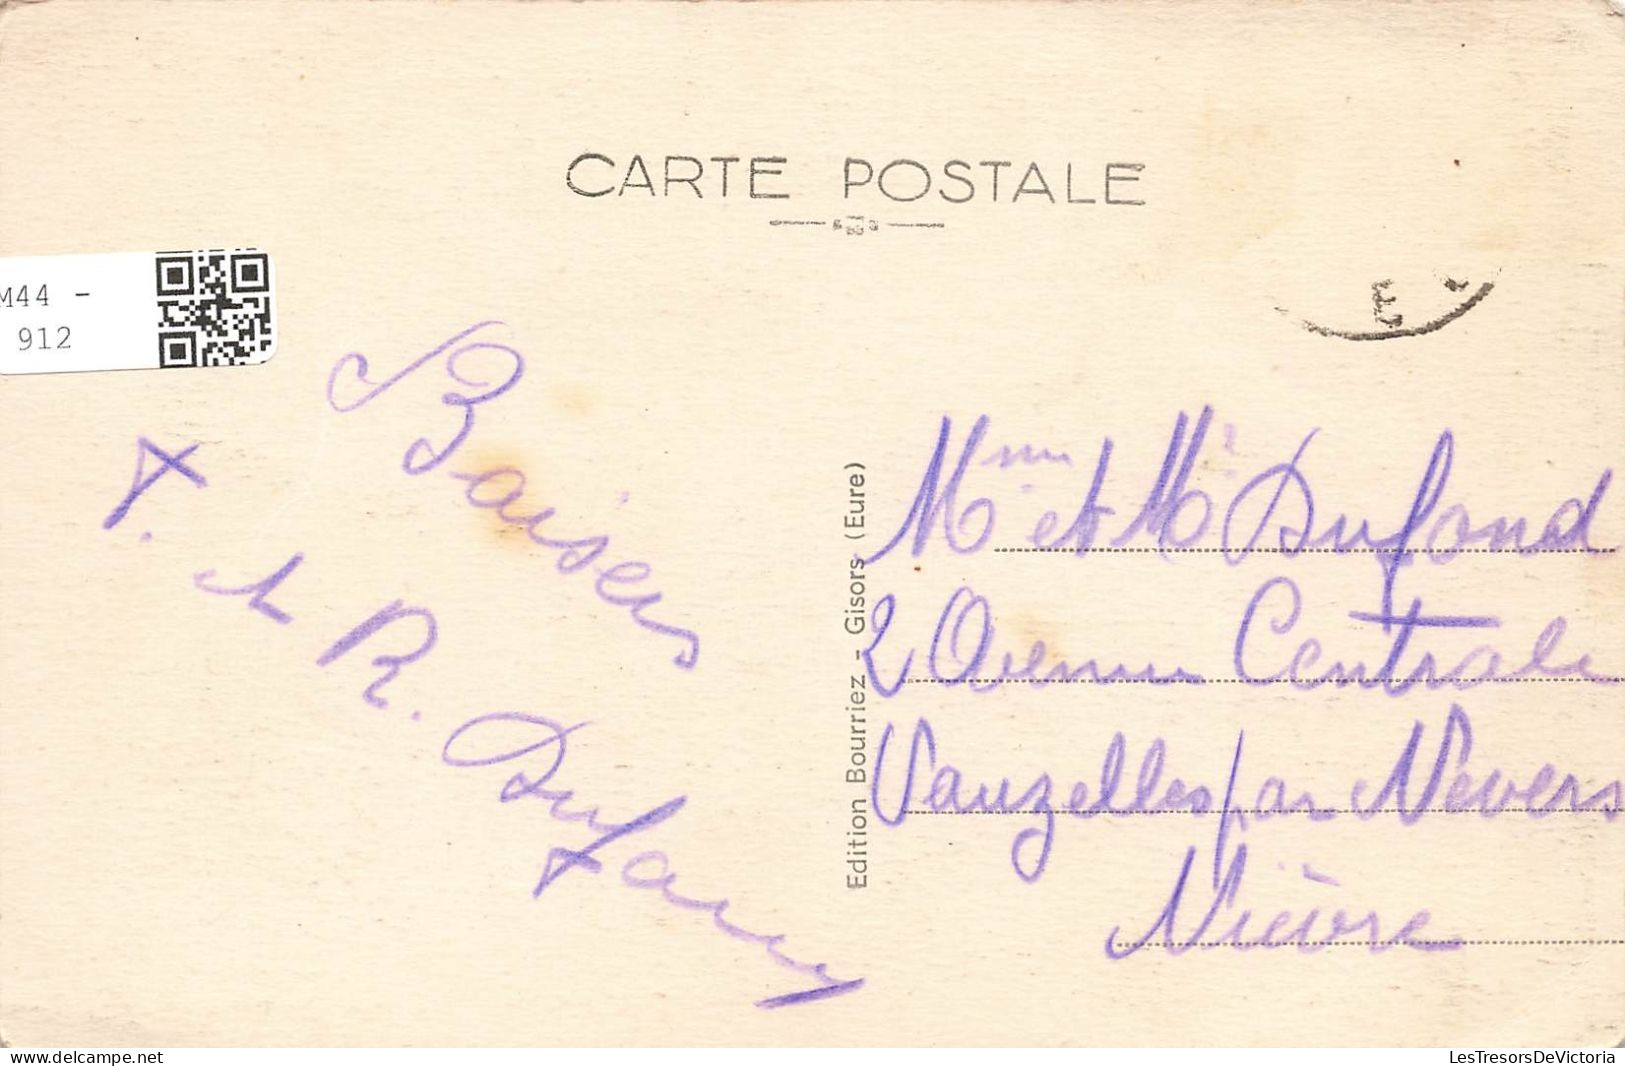 CARTE POSTALE
M44 -
912
Baisers
et R. Dufaud
Edition Bourriez - Gisors (Eure)
Mme et Mr Dufaud
2 Avenue Centrale
Vauzelles par Nevers
Nièvre
delcampe.net
LesTresorsDeVictoria